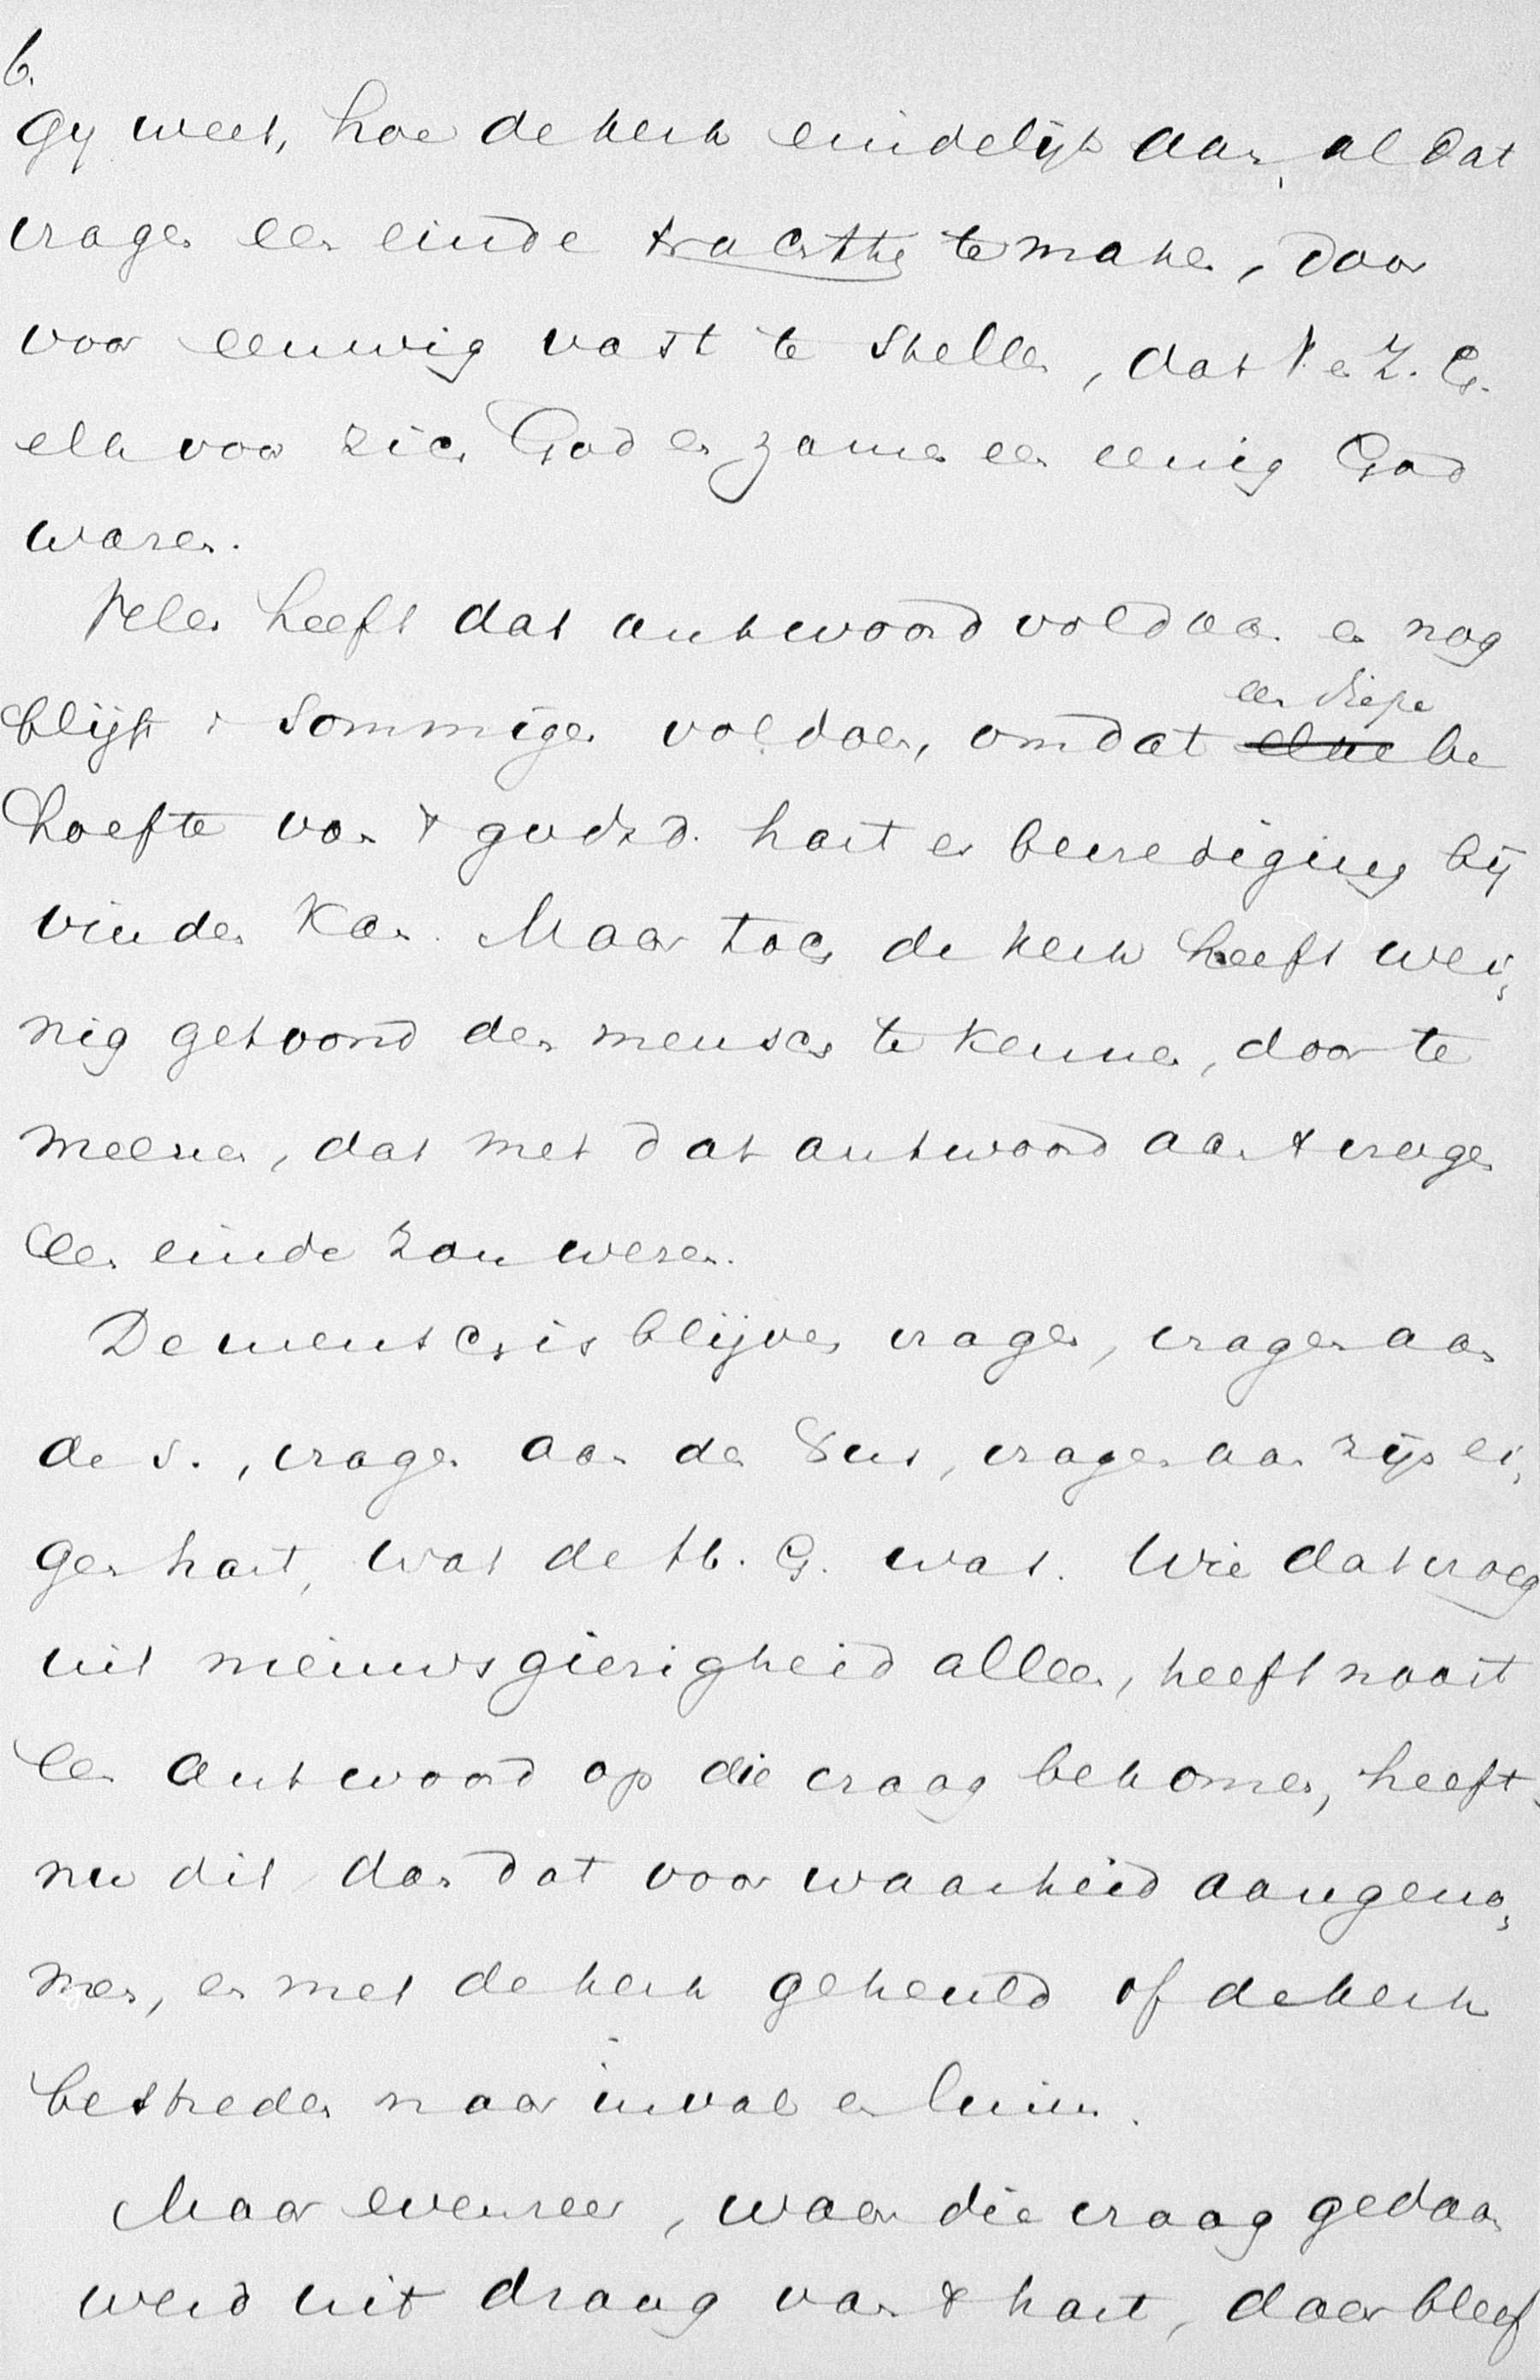 6.
Gy weet, hoe de kerk eindelijk aan al dat
vragen een einde trachtte te maken, door
voor eeuwig vast te stellen, dat V. en Z. G.
elk voor zich God en zamen een eenig God
waren.
Velen heeft dat antwoord voldaan en nog
blijft 't sommigen voldoen, omdat
een diepe
be
hoefte van 't godsd. hart er bevrediging bij
vinden kan. Maar toch de kerk heeft wei,
nig getoond den mensch te kennen, door te
meenen, dat met dat antwoord aan 't vragen
een einde zou wezen.
De mensch is blijven vragen, vragen aan
de s., vragen aan den Bijb, vragen aan zijn ei,
gen hart, wat de H. G. was. Wie dat vroeg
uit nieuwsgierigheid alleen, heeft nooit
een antwoord op die vraag bekomen, heeft
nu dit dan dat voor waarheid aangeno,
men, en met de kerk geheuld of de kerk
bestreden naar inval en luim.
Maar evenzeer, waar die vraag gedaan
werd uit drang van 't hart, daar bleef